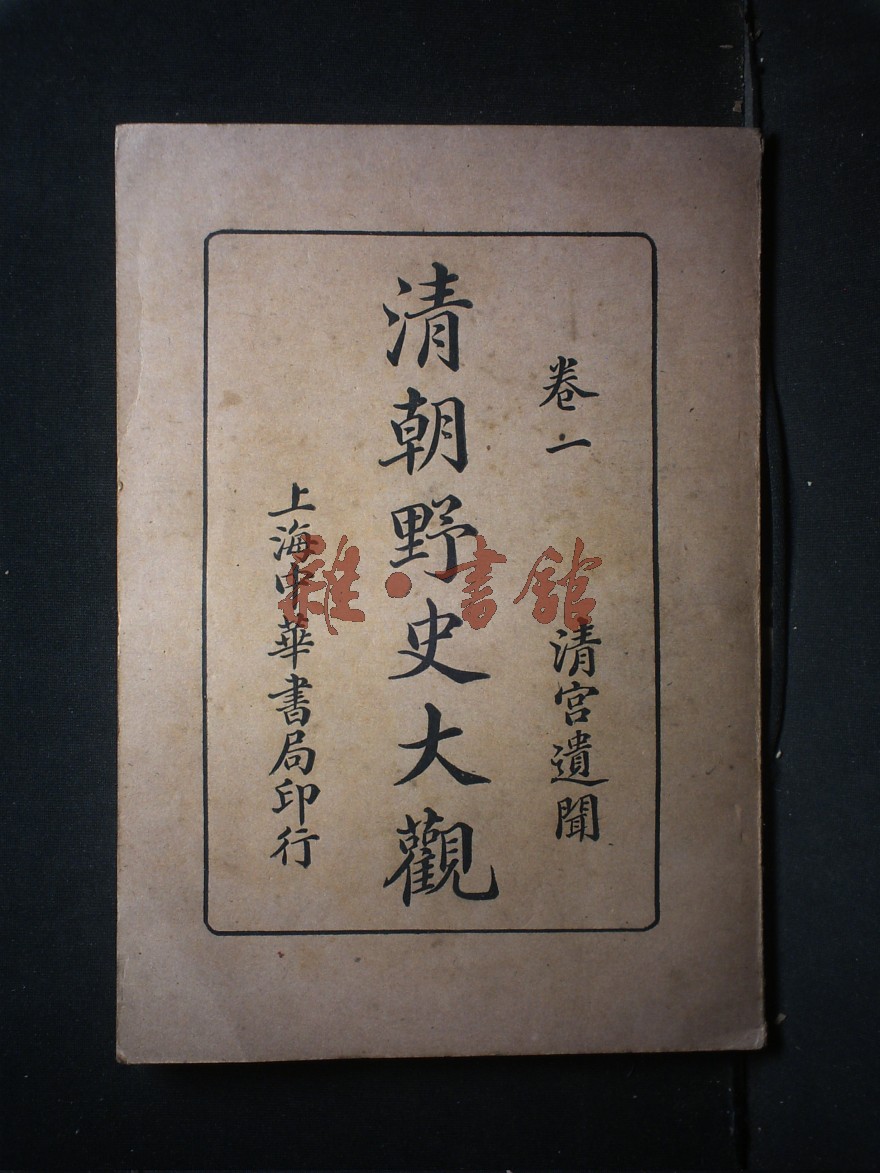 卷一　清宮遺聞
清朝野史大觀
上海中華書局印行
雜·書館